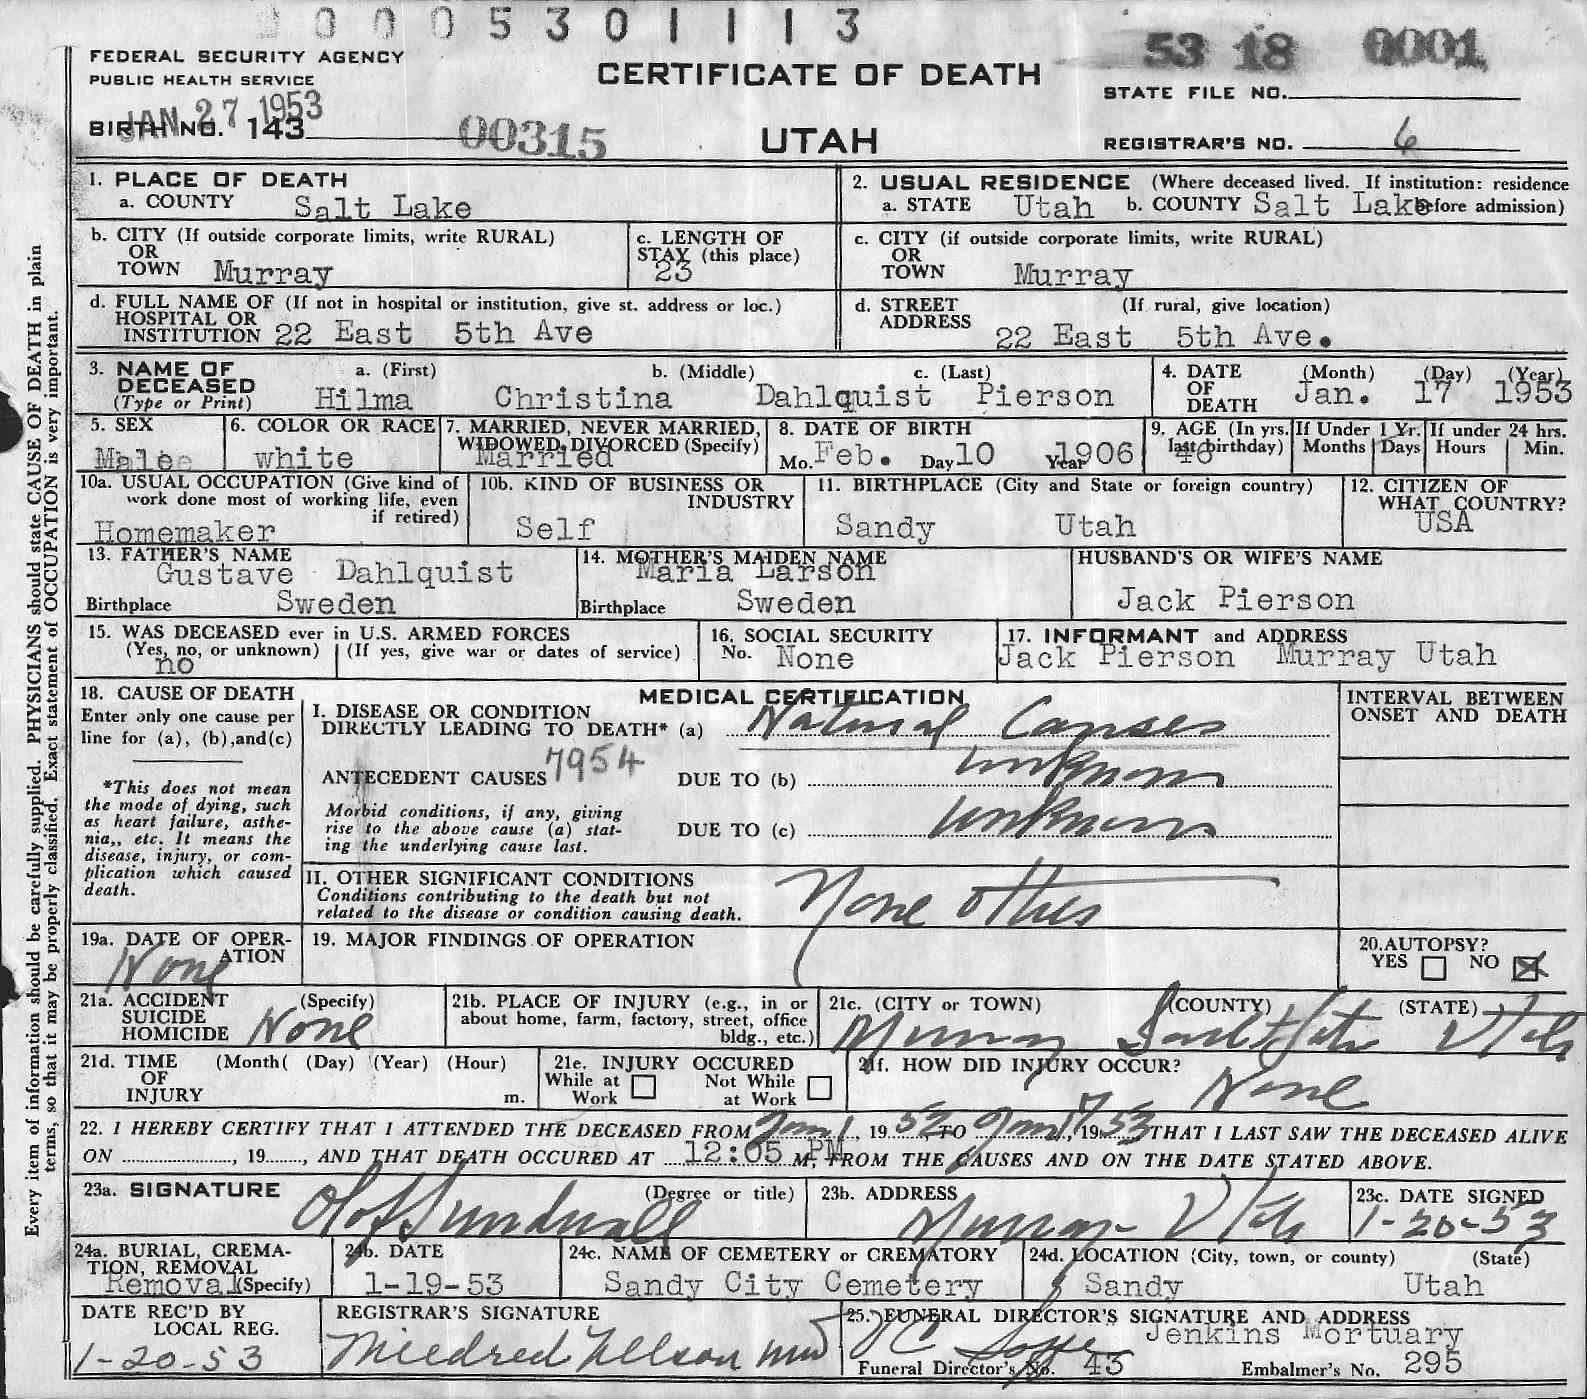 0 0 0 5 3 0 1 1 1 3
53 18 0001
FEDERAL SECURITY AGENCY
PUBLIC HEALTH SERVICE
CERTIFICATE OF DEATH
STATE FILE NO.
JAN 27 1953
BIRTH NO. 143
00315
UTAH
REGISTRAR'S NO. 6
Every item of information should be carefully supplied. PHYSICIANS should state CAUSE OF DEATH in plain
terms, so that it may be properly classified. Exact statement of OCCUPATION is very important.
1. PLACE OF DEATH
a. COUNTY Salt Lake
2. USUAL RESIDENCE (Where deceased lived. If institution: residence
a. STATE Utah b. COUNTY Salt Lake before admission)
b. CITY (If outside corporate limits, write RURAL)
OR
TOWN Murray
c. LENGTH OF
STAY (this place)
23
c. CITY (if outside corporate limits, write RURAL)
OR
TOWN Murray
d. FULL NAME OF (If not in hospital or institution, give st. address or loc.)
HOSPITAL OR
INSTITUTION 22 East 5th Ave
d. STREET (If rural, give location)
ADDRESS 22 East 5th Ave.
3. NAME OF a. (First) b. (Middle) c. (Last)
DECEASED
(Type or Print) Hilma Christina Dahlquist Pierson
4. DATE (Month) (Day) (Year)
OF
DEATH Jan. 17 1953
5. SEX
Malee
6. COLOR OR RACE
white
7. MARRIED, NEVER MARRIED,
WIDOWED, DIVORCED (Specify)
Married
8. DATE OF BIRTH
Mo. Feb. Day 10 Year 1906
9. AGE (In yrs.
last birthday)
46
If Under 1 Yr.
Months Days
If under 24 hrs.
Hours Min.
10a. USUAL OCCUPATION (Give kind of
work done most of working life, even
if retired)
Homemaker
10b. KIND OF BUSINESS OR
INDUSTRY
Self
11. BIRTHPLACE (City and State or foreign country)
Sandy Utah
12. CITIZEN OF
WHAT COUNTRY?
USA
13. FATHER'S NAME
Gustave Dahlquist
Birthplace Sweden
14. MOTHER'S MAIDEN NAME
Maria Larson
Birthplace Sweden
HUSBAND'S OR WIFE'S NAME
Jack Pierson
15. WAS DECEASED ever in U.S. ARMED FORCES
(Yes, no, or unknown) (If yes, give war or dates of service)
no
16. SOCIAL SECURITY
No. None
17. INFORMANT and ADDRESS
Jack Pierson Murray Utah
18. CAUSE OF DEATH
Enter only one cause per
line for (a), (b),and(c)
*This does not mean
the mode of dying, such
as heart failure, asthe-
nia,, etc. It means the
disease, injury, or com-
plication which caused
death.
MEDICAL CERTIFICATION
I. DISEASE OR CONDITION
DIRECTLY LEADING TO DEATH* (a) Natural Causes
ANTECEDENT CAUSES 7954 DUE TO (b) unknown
Morbid conditions, if any, giving
rise to the above cause (a) stat-
ing the underlying cause last.
DUE TO (c) unknown
INTERVAL BETWEEN
ONSET AND DEATH
II. OTHER SIGNIFICANT CONDITIONS
Conditions contributing to the death but not
related to the disease or condition causing death.
None other
19a. DATE OF OPER-
ATION
None
19. MAJOR FINDINGS OF OPERATION
20. AUTOPSY?
YES NO
21a. ACCIDENT (Specify)
SUICIDE
HOMICIDE None
21b. PLACE OF INJURY (e.g., in or
about home, farm, factory, street, office
bldg., etc.)
21c. (CITY or TOWN) (COUNTY) (STATE)
Murray Salt Lake Utah
21d. TIME (Month( (Day) (Year) (Hour)
OF
INJURY m.
21e. INJURY OCCURED
While at Work Not While at Work
21f. HOW DID INJURY OCCUR?
None
22. I HEREBY CERTIFY THAT I ATTENDED THE DECEASED FROM Jan 1, 19 52 TO Jan 17, 19 53 THAT I LAST SAW THE DECEASED ALIVE
ON , 19 , AND THAT DEATH OCCURED AT 12:05 PM M, FROM THE CAUSES AND ON THE DATE STATED ABOVE.
23a. SIGNATURE (Degree or title)
Olof Sundwall
23b. ADDRESS
Murray Utah
23c. DATE SIGNED
1-20-53
24a. BURIAL, CREMA-
TION, REMOVAL
Removal (Specify)
24b. DATE
1-19-53
24c. NAME OF CEMETERY or CREMATORY
Sandy City Cemetery
24d. LOCATION (City, town, or county) (State)
Sandy Utah
DATE REC'D BY
LOCAL REG.
1-20-53
REGISTRAR'S SIGNATURE
Mildred Nelson MD
25. FUNERAL DIRECTOR'S SIGNATURE AND ADDRESS
Jenkins Mortuary
Funeral Director's No. 43 Embalmer's No. 295